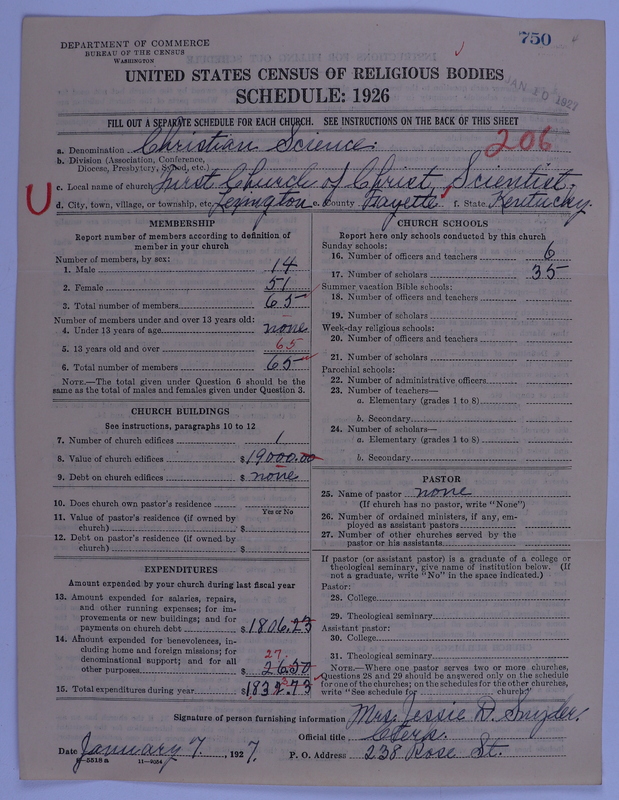 DEPARTMENT OF COMMERCE
BUREAU OF THE CENSUS
WASHINGTON
750
JAN 10 1927
UNITED STATES CENSUS OF RELIGIOUS BODIES
SCHEDULE: 1926
FILL OUT A SEPARATE SCHEDULE FOR EACH CHURCH. SEE INSTRUCTIONS ON THE BACK OF THIS SHEET
206
a. Denomination Christian Science.
b. Division (Association, Conference, Diocese, Presbytery, Synod, etc.)
U
c. Local name of church First Church of Christ, Scientist,
d. City, town, village, or township, etc. Lexington e. County Fayette f. State Kentucky.
MEMBERSHIP
Report number of members according to definition of
member in your church
Number of members, by sex:
1. Male 14
2. Female 51
3. Total number of members 65
Number of members under and over 13 years old:
4. Under 13 years of age none
5. 13 years old and over 65
6. Total number of members 65
NOTE.—The total given under Question 6 should be the
same as the total of males and females given under Question 3.
CHURCH BUILDINGS
See instructions, paragraphs 10 to 12
7. Number of church edifices 1
8. Value of church edifices $19000.00
9. Debt on church edifices $ none
10. Does church own pastor's residence
Yes or No
11. Value of pastor's residence (if owned by
church) $
12. Debt on pastor's residence (if owned by
church) $
EXPENDITURES
Amount expended by your church during last fiscal year
13. Amount expended for salaries, repairs,
and other running expenses; for im-
provements or new buildings; and for
payments on church debt $1806.23
14. Amount expended for benevolences, in-
cluding home and foreign missions; for
denominational support; and for all
other purposes $ 26.50
27.
15. Total expenditures during year $1832.73
3
CHURCH SCHOOLS
Report here only schools conducted by this church
Sunday schools:
16. Number of officers and teachers 6
17. Number of scholars 35
Summer vacation Bible schools:
18. Number of officers and teachers
19. Number of scholars
Week-day religious schools:
20. Number of officers and teachers
21. Number of scholars
Parochial schools:
22. Number of administrative officers
23. Number of teachers—
a. Elementary (grades 1 to 8)
b. Secondary
24. Number of scholars—
a. Elementary (grades 1 to 8)
b. Secondary
PASTOR
25. Name of pastor none
(If church has no pastor, write "None")
26. Number of ordained ministers, if any, em-
ployed as assistant pastors
27. Number of other churches served by the
pastor or his assistants
If pastor (or assistant pastor) is a graduate of a college or
theological seminary, give name of institution below. (If
not a graduate, write "No" in the space indicated.)
Pastor:
28. College
29. Theological seminary
Assistant pastor:
30. College
31. Theological seminary
NOTE.—Where one pastor serves two or more churches,
Questions 28 and 29 should be answered only on the schedule
for one of the churches; on the schedules for the other churches,
write "See schedule for church"
Signature of person furnishing information Mrs. Jessie D. Snyder.
Official title Clerk.
Date January 7, 1927.
P. O. Address 238 Rose St.
8—5518 a 11—9054